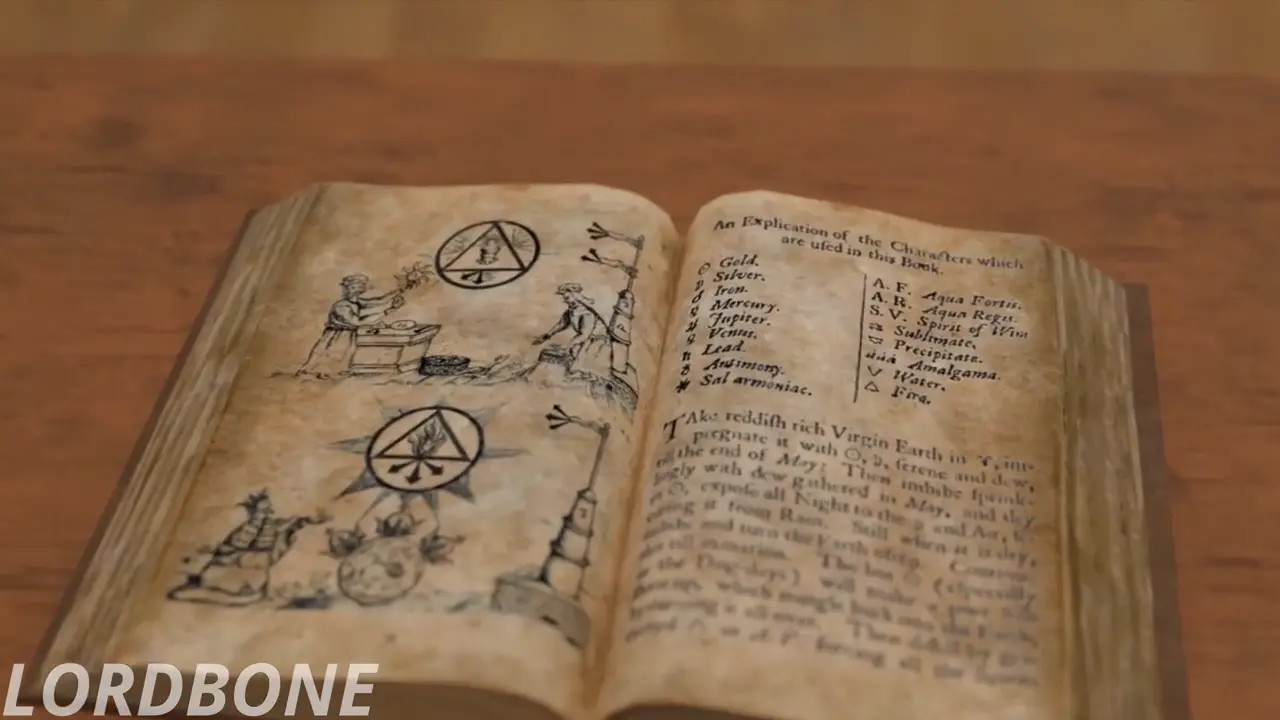 An Explication of the Characters which
are uſed in this Book.
☉ Gold.
☽ Silver.
♂ Iron.
☿ Mercury.
♃ Jupiter.
♀ Venus.
♄ Lead.
Antimony.
✱ Sal armoniac.
A. F. Aqua Fortis.
A. R. Aqua Regis.
S. V. Spirit of Wine
Sublimate.
Precipitate.
aaa Amalgama.
▽ Water.
△ Fire.
TAke reddiſh rich Virgin Earth in ♈, im-
pregnate it with ☉, ☽, ſerene and dew,
till the end of May: Then imbibe ſprink-
lingly with dew gathered in May, and dry
in ☉, expoſe all Night to the ☽ and Air,
it from Rain. Still when it is dry,
and turn the Earth often.
till The beſt (eſpecially
the Dog-days) will make a
which mingle back
Then
A. F. forcing all the
LORDBONE